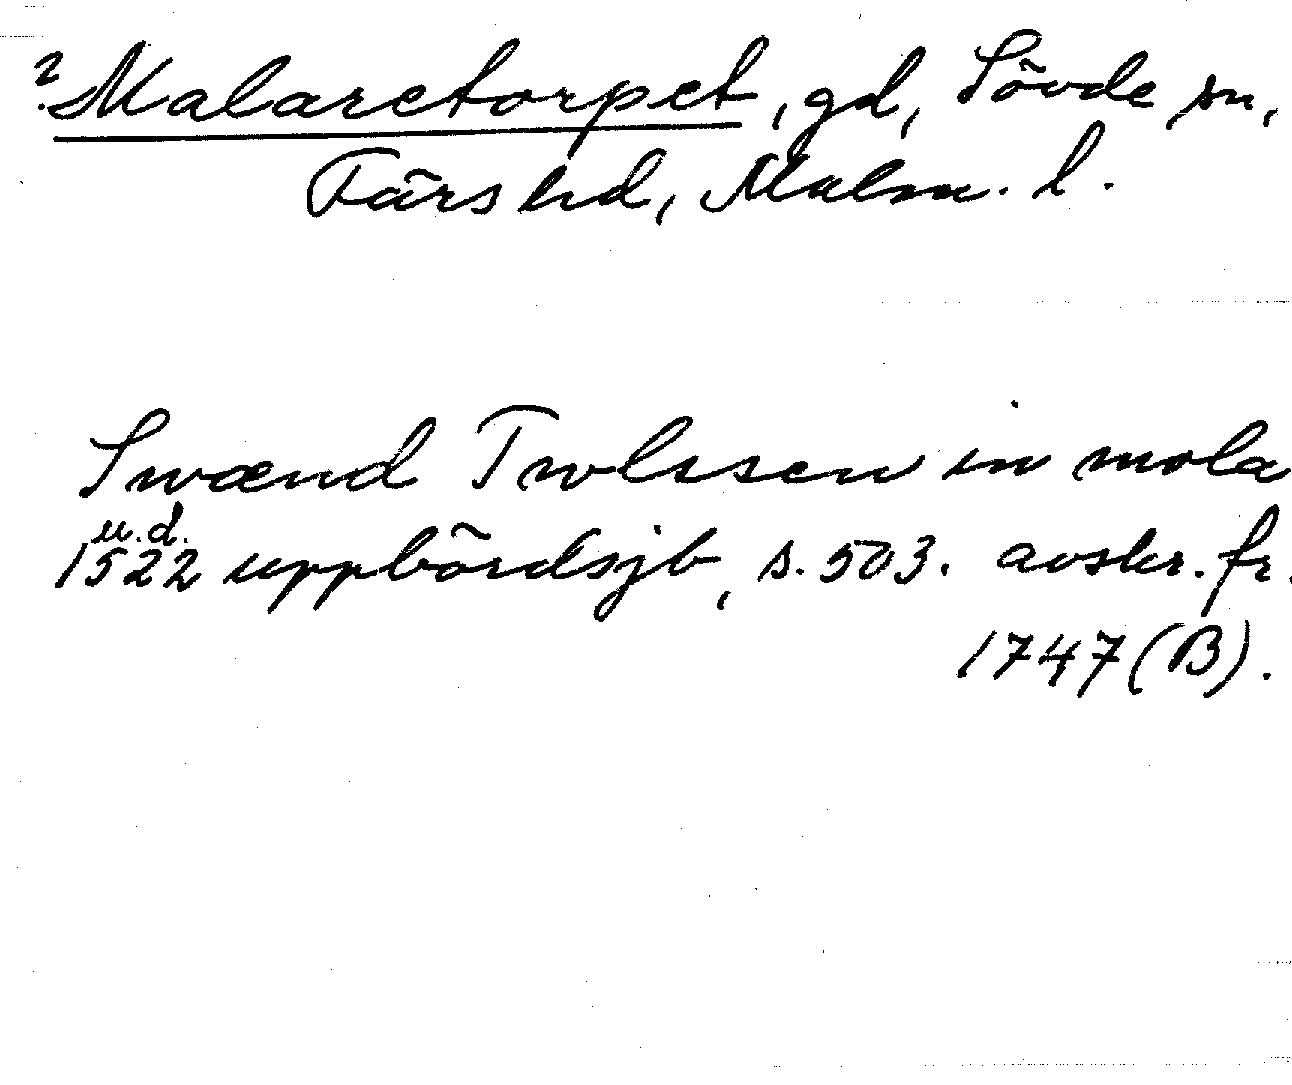 ? Malaretorpet, gd, Sövde sn,
Färs hd, Malm. l.
Swænd Trwlssen in mola
u.d.
1522 uppbördsjb, s. 503. avskr. fr.
1747 (B).